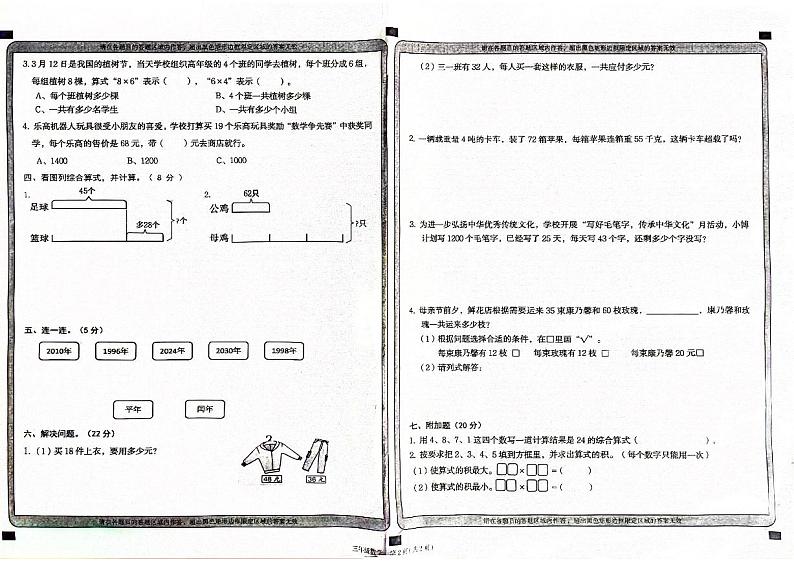 请在各题目的答题区域内作答，超出黑色矩形边框限定区域的答案无效
3. 3月12日是我国的植树节，当天学校组织高年级的4个班的同学去植树，每个班分成6组，
每组植树8棵，算式“8×6”表示（    ），“6×4”表示（    ）。
A、每个班植树多少棵    B、4个班一共植树多少棵
C、一共有多少名学生    D、一共有多少个小组
4. 乐高机器人玩具很受小朋友的喜爱，学校打算买19个乐高玩具奖励“数学争先赛”中获奖同
学，每个乐高的售价是68元，带（    ）元去商店就行。
A、1400    B、1200    C、1000
四、看图列综合算式，并计算。（8分）
1.
45个
足球
多28个
?个
篮球
2.
62只
公鸡
?只
母鸡
五、连一连。（5分）
2010年    1996年    2024年    2030年    1998年
平年    闰年
六、解决问题。（22分）
1.（1）买18件上衣，要用多少元？
48元    36元
请在各题目的答题区域内作答，超出黑色矩形边框限定区域的答案无效
请在各题目的答题区域内作答，超出黑色矩形边框限定区域的答案无效
（2）三一班有32人，每人买一套这样的衣服，一共应付多少元？
2. 一辆载重4吨的卡车，装了72箱苹果，每箱苹果连箱重55千克，这辆卡车超载了吗？
3. 为进一步弘扬中华优秀传统文化，学校开展“写好毛笔字，传承中华文化”月活动，小博
计划写1200个毛笔字，已经写了25天，每天写43个字，还剩多少个字没写？
4. 母亲节前夕，鲜花店根据需要运来35束康乃馨和60枝玫瑰，____________，康乃馨和玫
瑰一共运来多少枝？
（1）根据问题选择合适的条件，在□里画“√”：
每束康乃馨有12枝 □    每束玫瑰有12枝 □    每束康乃馨20元 □
（2）请列式解答：
七、附加题（20分）
1. 用4、8、7、1这四个数写一道计算结果是24的综合算式（                ）。
2. 按要求把2、3、4、5填到方框里，并求出算式的积。（每个数字只能用一次）
（1）使算式的积最大。□□×□□=（    ）
（2）使算式的积最小。□□×□□=（    ）
请在各题目的答题区域内作答，超出黑色矩形边框限定区域的答案无效
三年级数学 第2页（共2页）